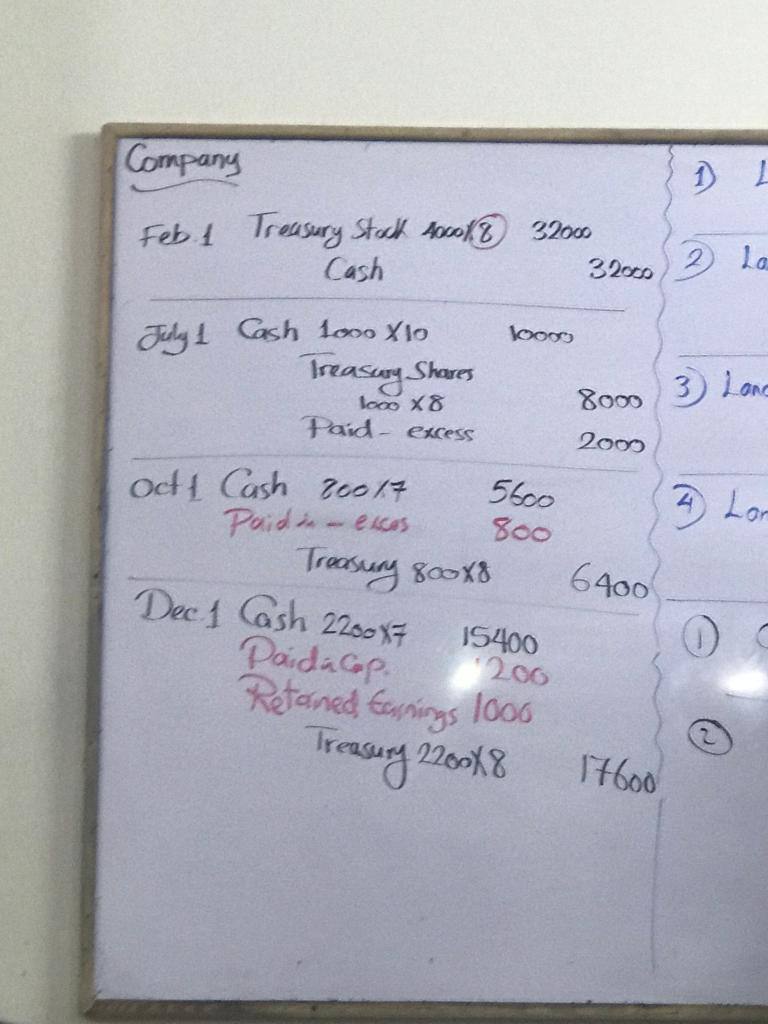 Company
Feb.1 Treasury Stock 4000X8 32000
Cash 32000
July 1 Cash 1000 X10 10000
Treasury Shares
1000 X8 8000
Paid - excess 2000
Oct 1 Cash 800X7 5600
Paid in - exces 800
Treasury 800X8 6400
Dec.1 Cash 2200X7 15400
Paid in Cap. 1200
Retained Earnings 1000
Treasury 2200X8 17600
1)
2) La
3) Land
4) Lan
1
2